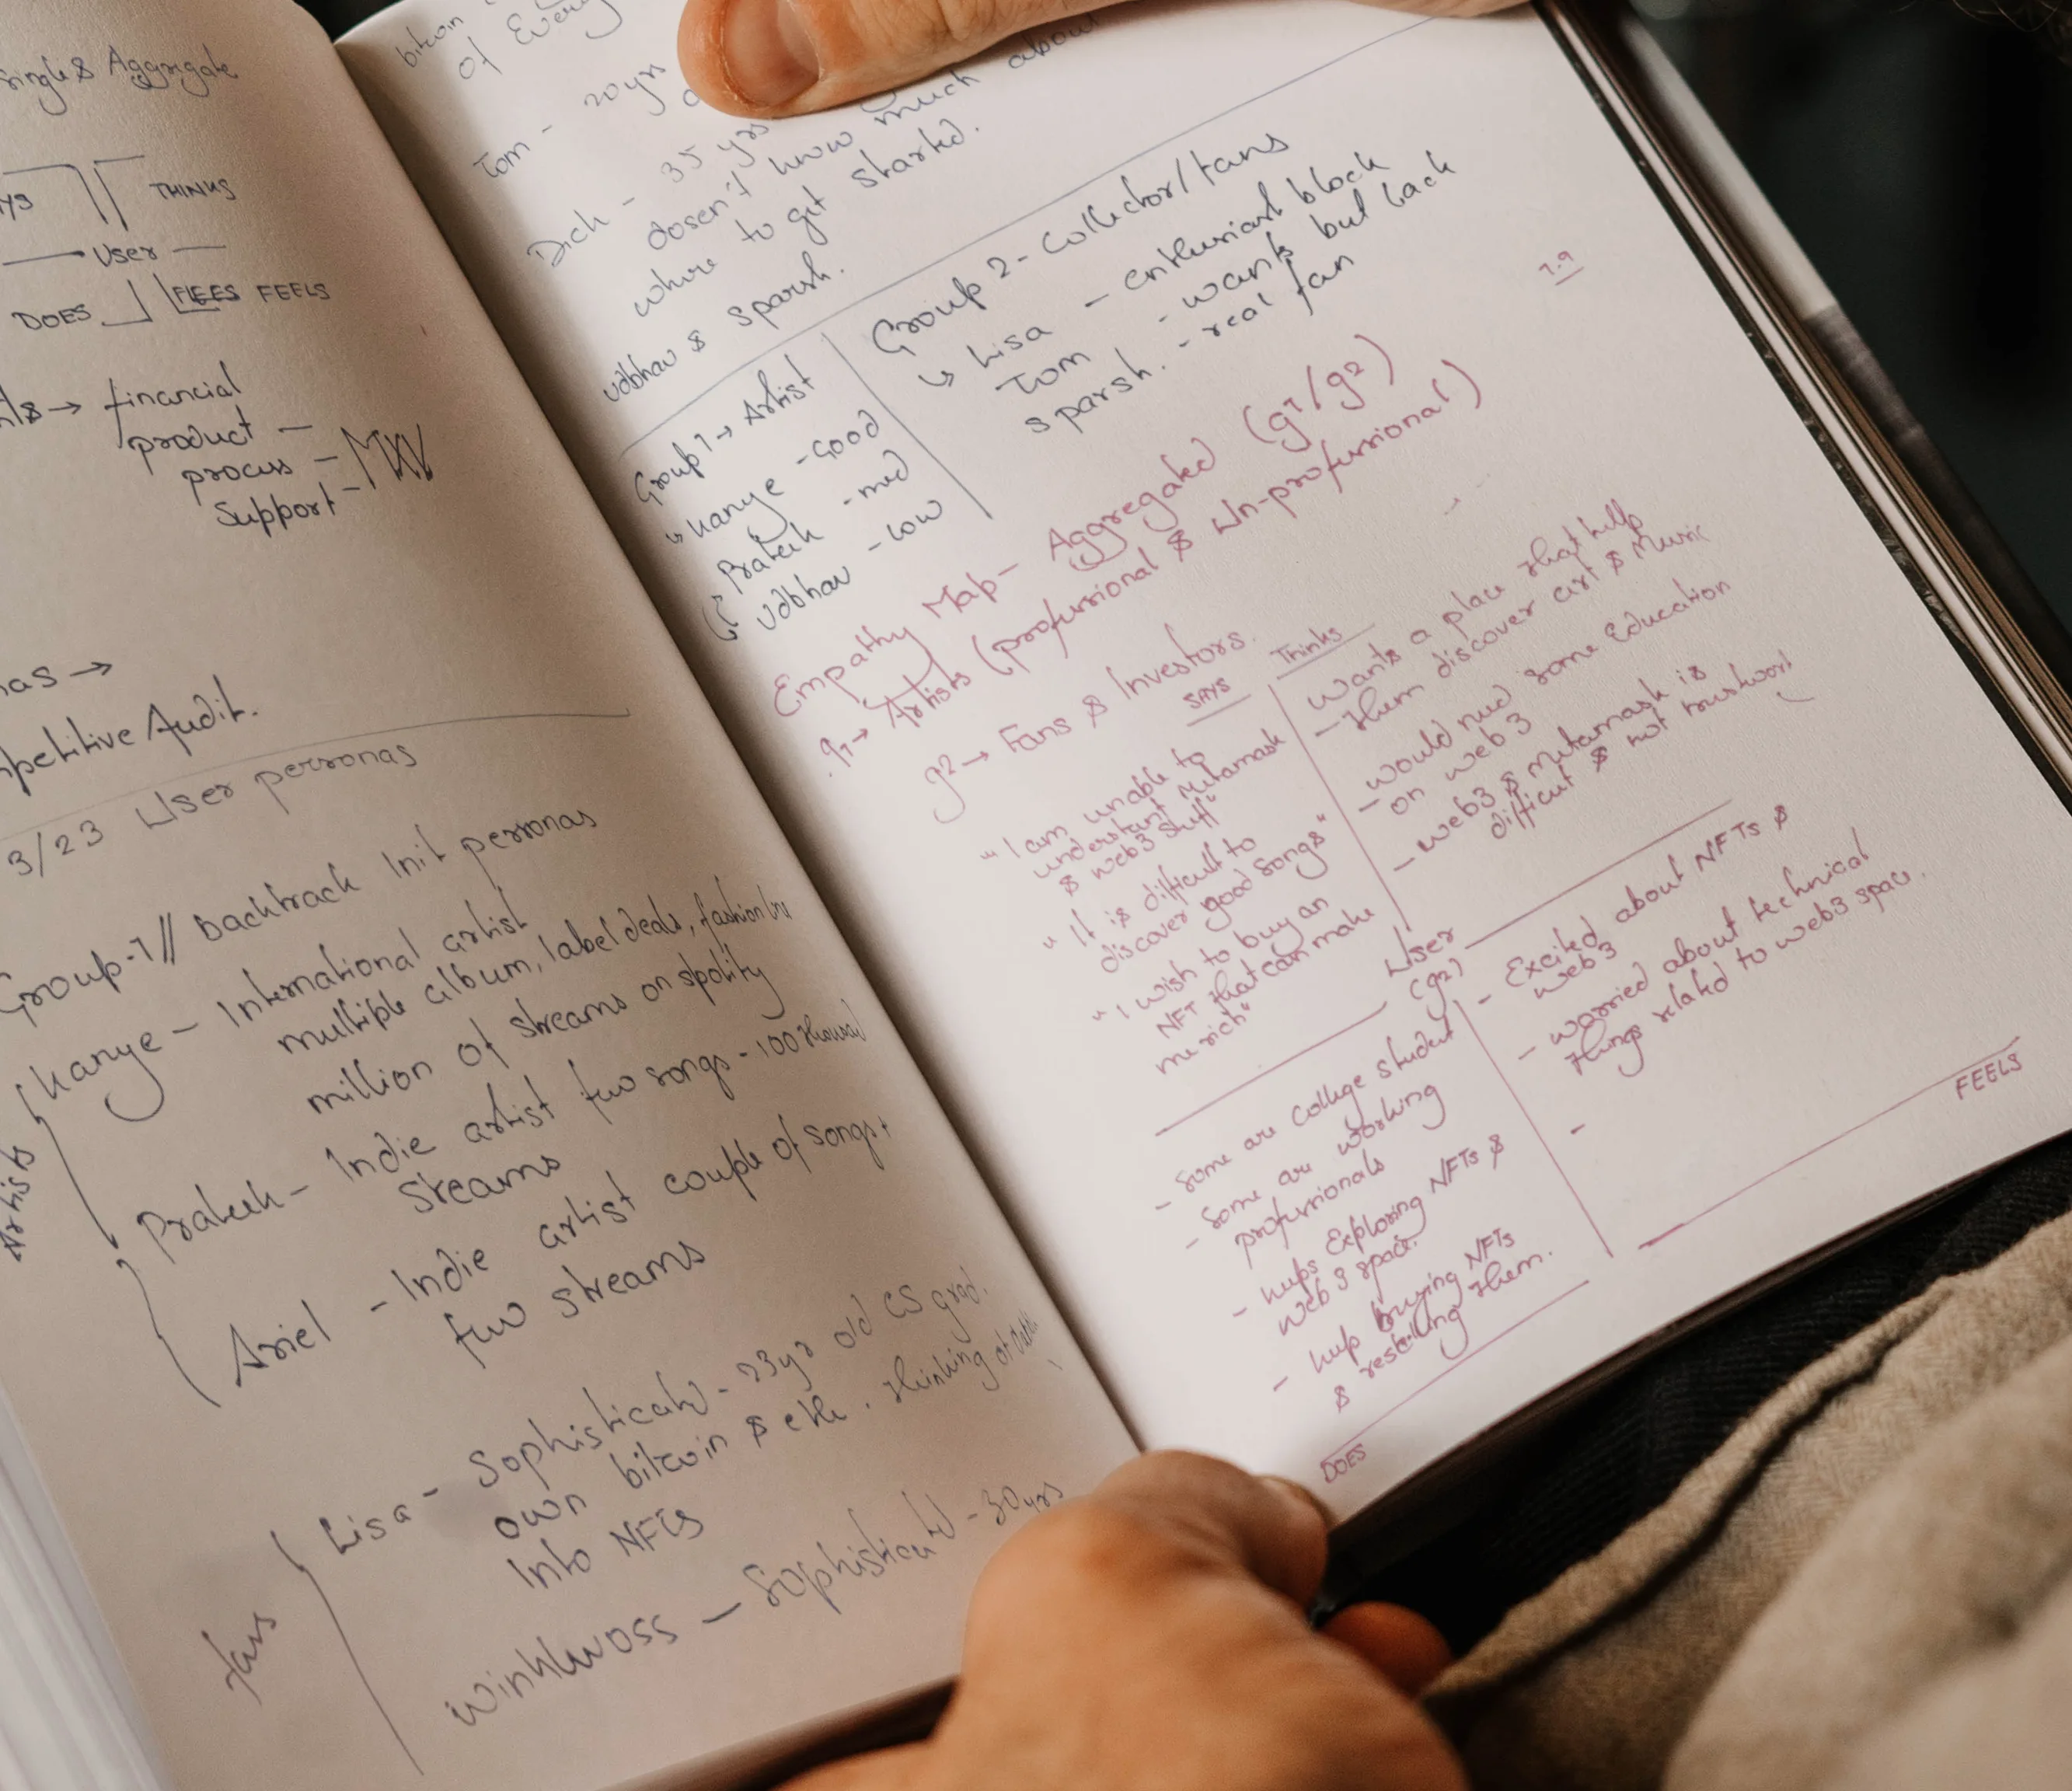 single & Aggregate
THINKS
User
DOES FEELS
financial
product —
process —
Support -
petitive Audit.
3/23 User personas
Group-1// Backtrack Init personas
Artists
Kanye - International artist
multiple album, label deals, fashion
million of streams on spotify
Prateek - Indie artist few songs - 100 thousand
streams
Ariel - Indie artist couple of songs +
few streams
fans
Lisa - Sophisticated - 23yr old CS grad.
own bitcoin & eth. thinking of
into NFTs
Winklwoss - Sophisticated - 30yrs
bitcoin
of Every
Tom - 20yrs
Dick - 35 yrs
dosen't know much about
where to get started.
Udbhav & Sparsh.
Group 1 → Artist
↳ Kanye - Good
Prateek - med
↳ Udbhav - Low
Group 2 - Collector/fans
↳ Lisa - enthusiast block
Tom - wants but lack
Sparsh. - real fan
1.9
Empathy Map - Aggregated (g1/g2)
g1→ Artists (professional & Un-professional)
g2→ Fans & Investors.
SAYS
"I am unable to
understant Metamask
& web3 stuff"
"It is difficult to
discover good songs"
"I wish to buy an
NFT that can make
me rich"
Thinks
Wants a place that help
- them discover art & Music
- would need some Education
on web3
- web3 & Metamask is
difficult & not
User
(g2)
- Some are college student
- Some are working
professionals
- keeps Exploring NFTs &
web 3 space.
- keep buying NFTs
& reselling them.
DOES
- Excited about NFTs &
web3
- worried about technical
things related to web3 space.
-
FEELS